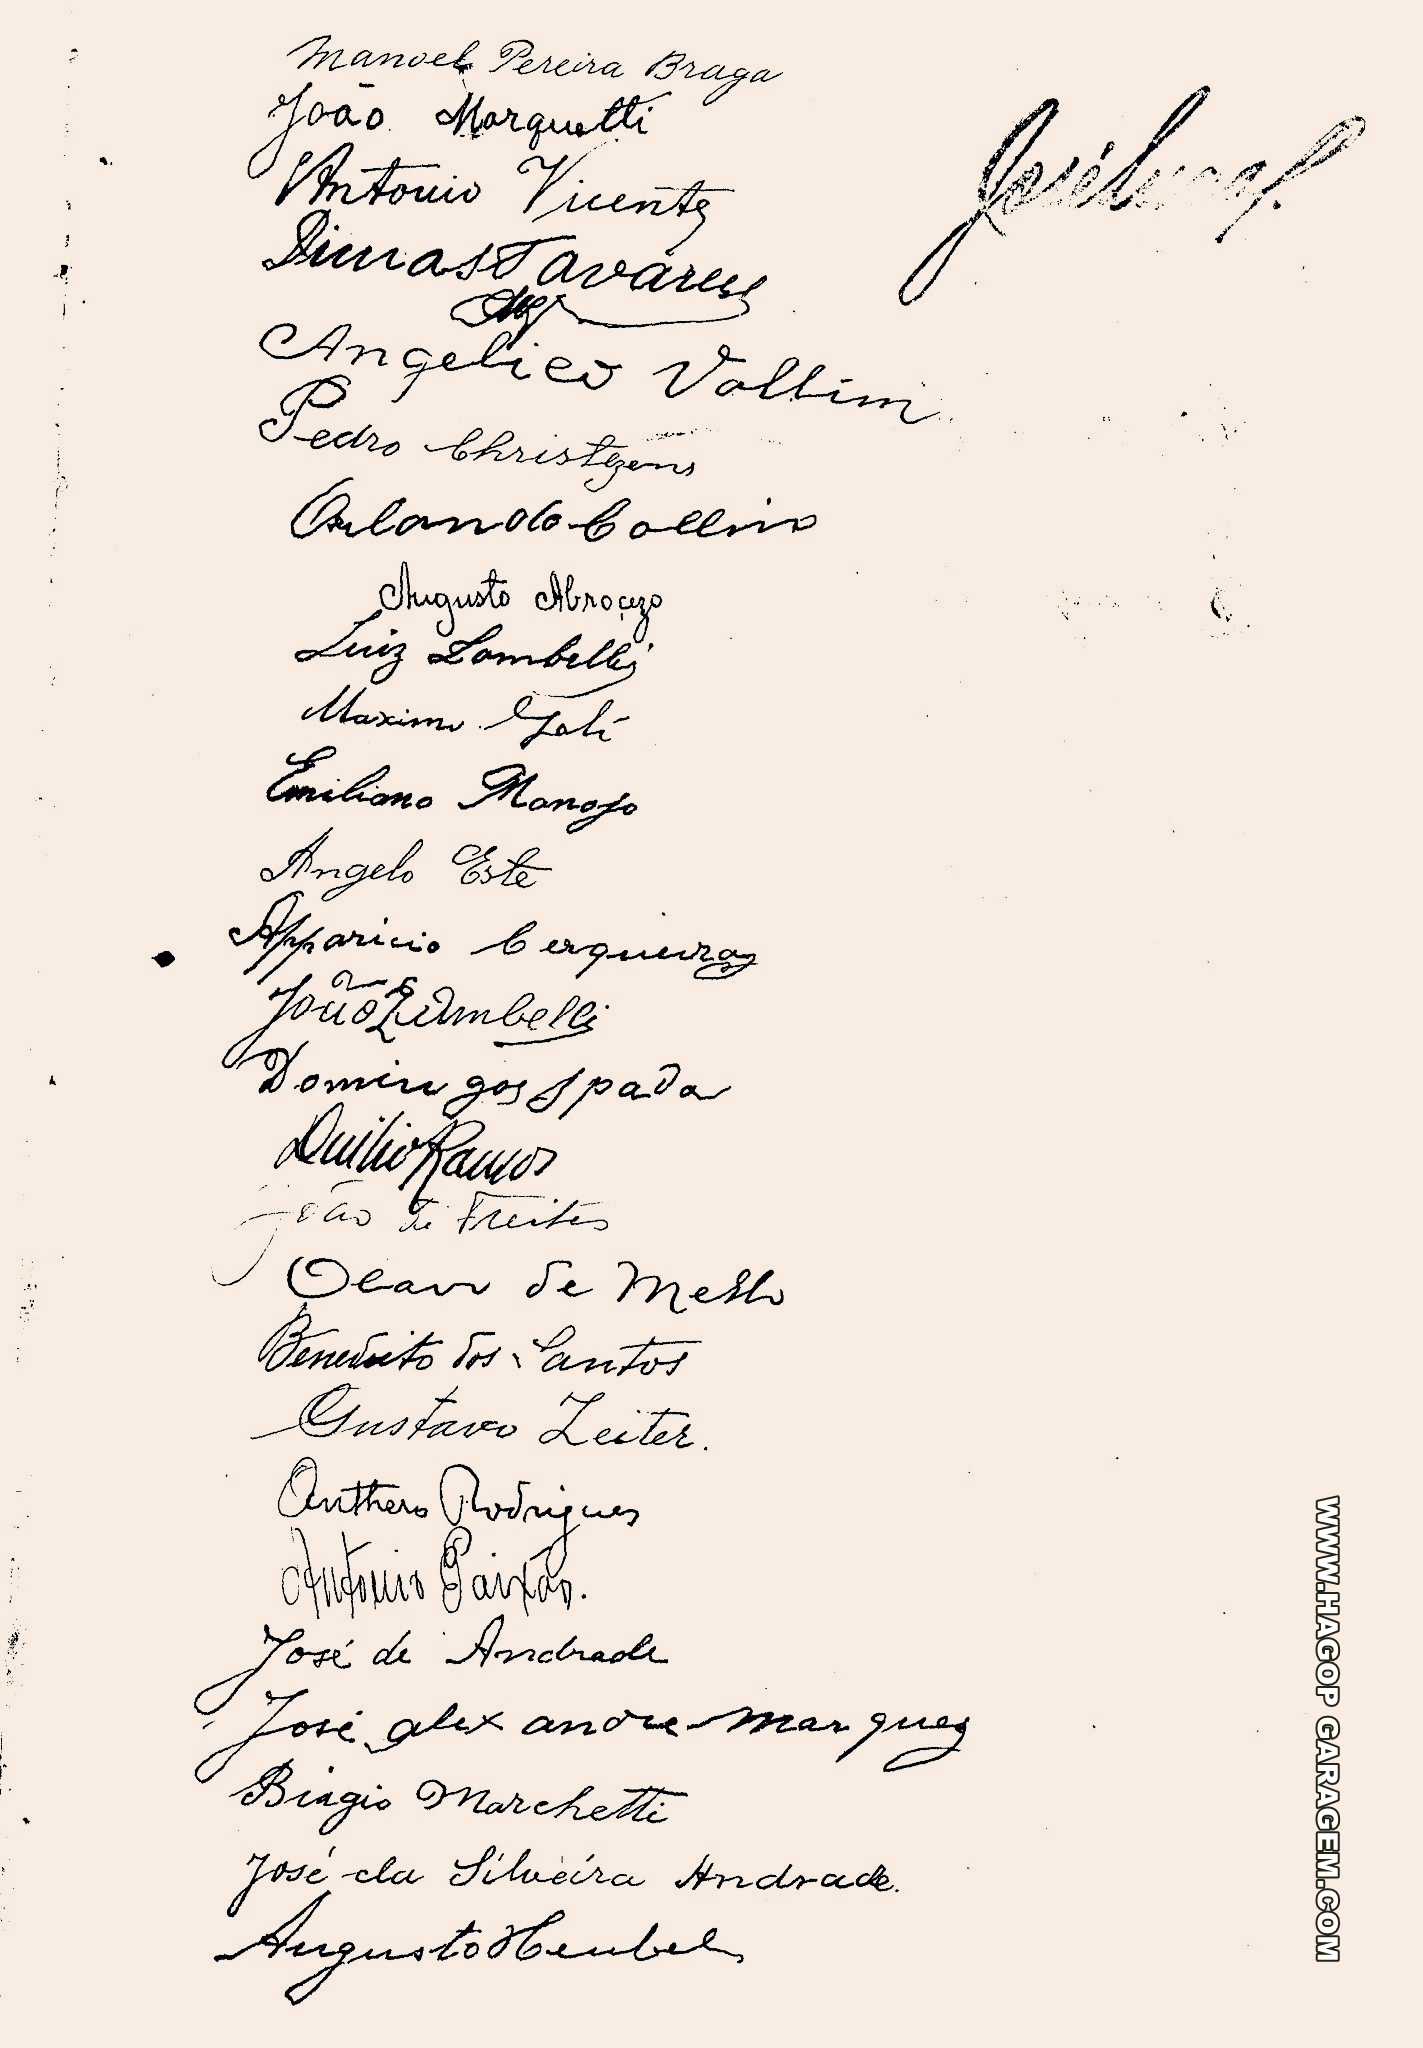 Manoel Pereira Braga
João Marquetti
José Lucas
Antonio Vicente
Dimas Tavares
Angelico Vallim
Pedro
Orlando Collino
Augusto
Luiz Lambelli
Maximo
Emiliano
Angelo Este
Apparicio Cerqueira
João Zambelli
Domingos Spada
Duilio Ramos
João de Freites
Olavo de Mello
Benedicto dos Santos
Gustavo Zeiter.
Anthero Rodrigues
Antonio Paixão.
José de Andrade
José alexandre marques
Biagio Marchetti
José da Silveira Andrade.
Augusto Heubel
WWW.HAGOP GARAGEM.COM